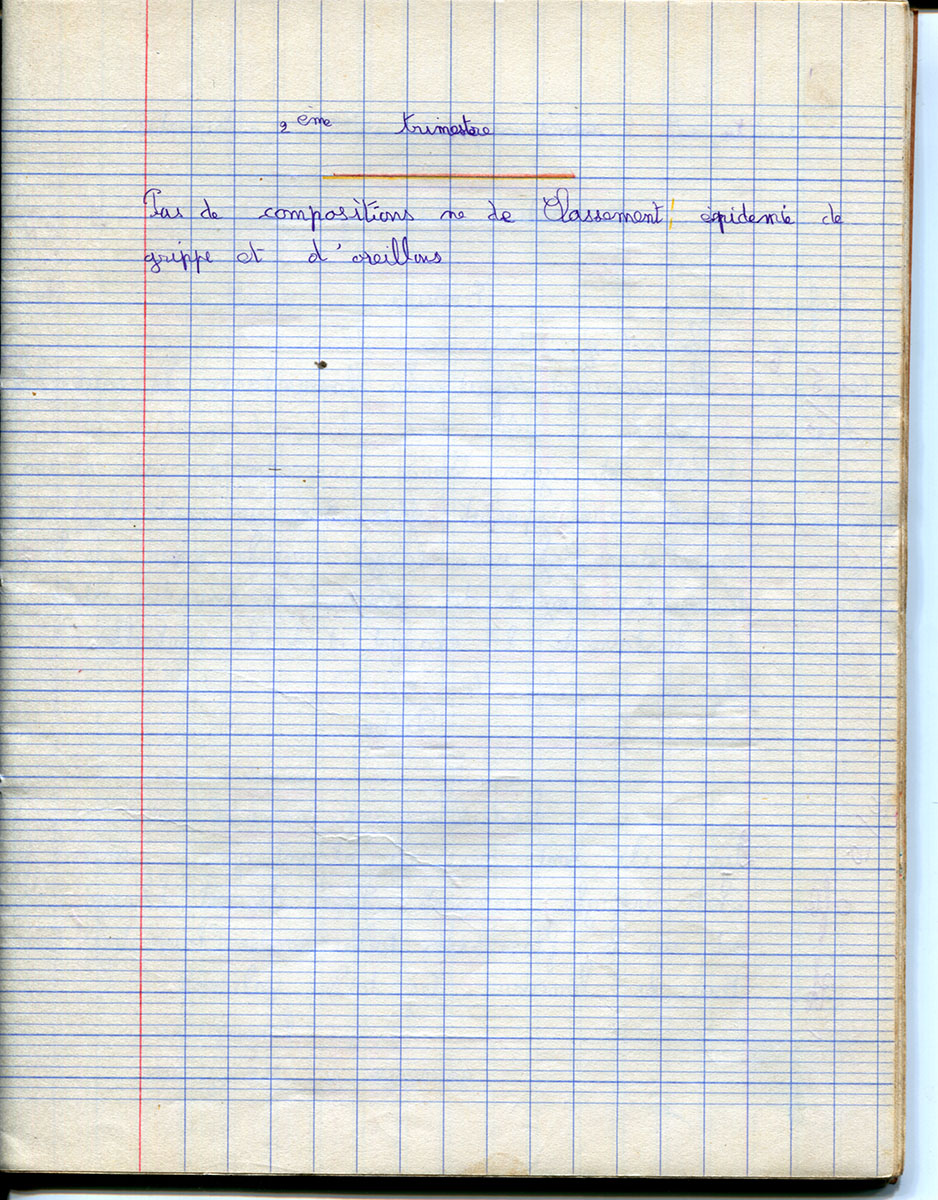 2eme trimestre
Pas de compositions ne de Classement épidemie de
grippe et d'oreillons